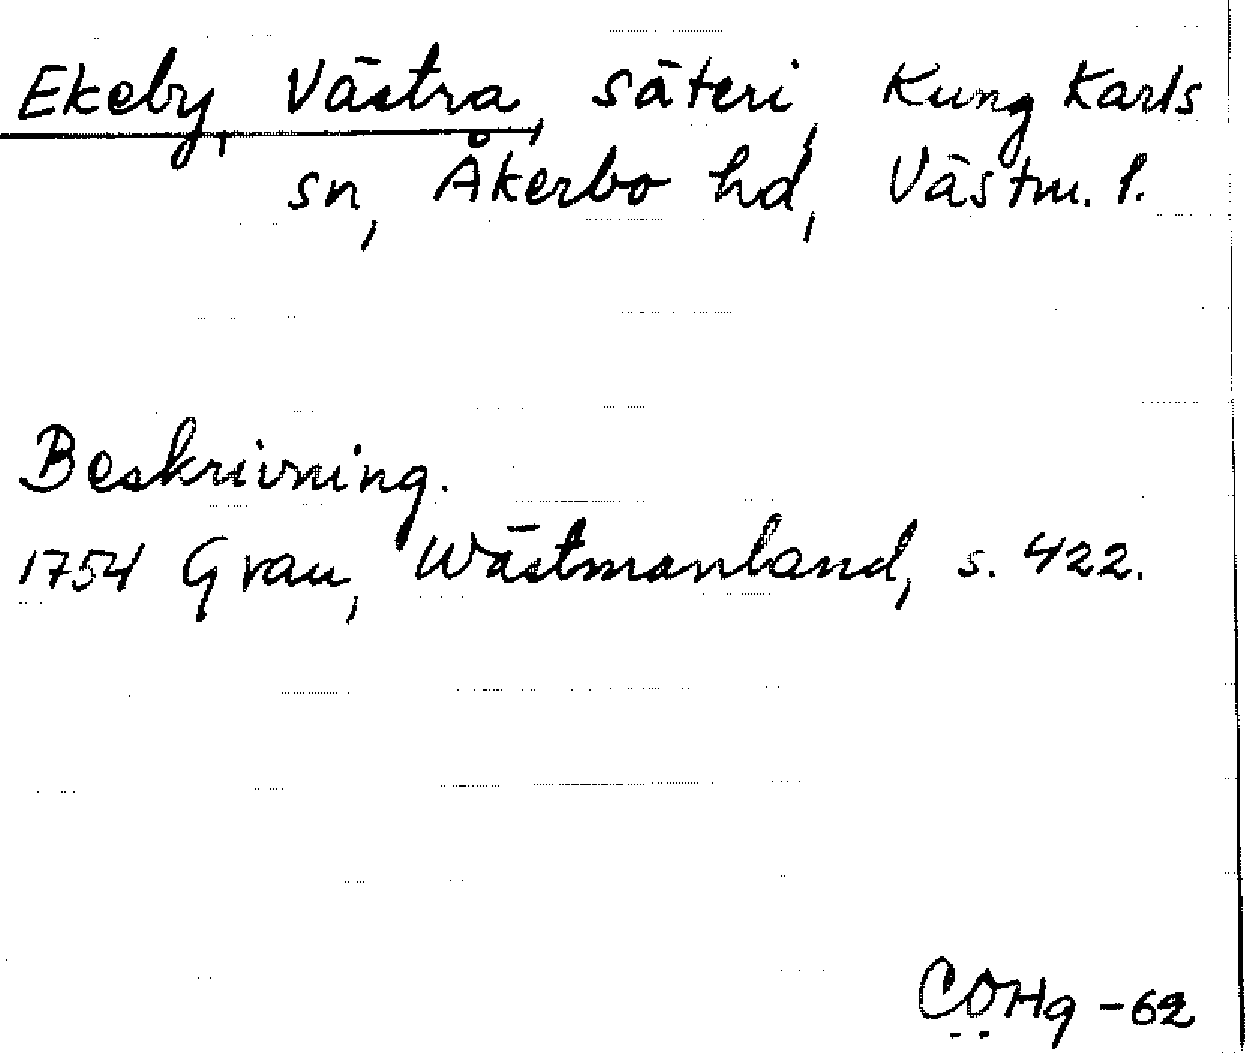 Ekeby, Västra, säteri, Kung Karls
sn, Åkerbo hd, Västm. l.
Beskrivning.
1754 Grau, Wästmanland, s. 422.
CÖHg -62